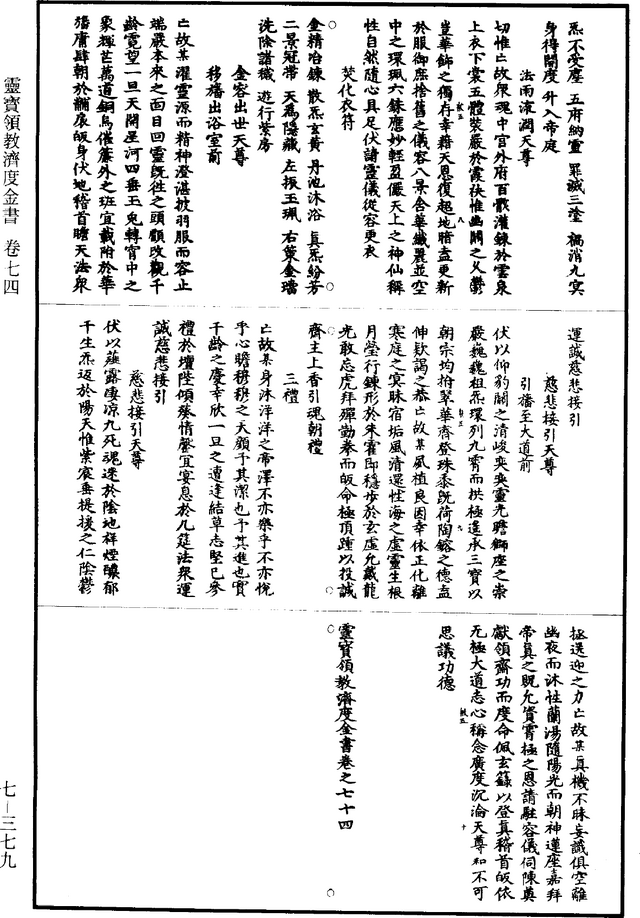 靈寶領教濟度金書 卷七四
七—三七九
炁不受塵 五府納靈 罪滅三塗 禍消九冥
身得開度 升入帝庭
法雨流潤天尊
切惟亡故衆魂中宮外府百骸灌鍊於靈泉
上衣下裳五體裝嚴於霞袂惟幽關之久鬱
豈華飾之獨存幸藉天恩復起地暗盍更新
於服御庶捨舊之儀容八景含華纖麗並空
中之環珮六銖應妙輕盈儼天上之神仙稱
性自然隨心具足伏請靈儀從容更衣
焚化衣符
金精冶鍊 散炁玄黃 丹池沐浴 真炁紛芳
二景冠帶 天蔿隱藏 左振玉珮 右策金璫
洗除諸穢 遊行紫房
金容出世天尊
移旛出浴室前
亡故某濯靈源而精神澄湛披羽服而容止
端嚴本來之面目回靈既往之頭顱改觀千
齡霓望一旦天開星河四垂玉兔轉宵中之
象輝芒萬道銅烏催簾外之班宜載附於華
旛庸肆朝於黼扆皈身伏地稽首瞻天法衆
運誠慈悲接引
慈悲接引天尊
引旛至大道前
伏以仰豹關之清峻奕奕靈光瞻獅座之崇
嚴巍巍祖炁環列九霄而拱極逢承三寶以
朝宗均拚翠華齊登珠黍既荷陶鎔之德盍
伸欵謁之恭亡故某夙植良因幸依正化離
寒庭之冥昧宿垢風清還性海之虛靈生根
月瑩行鍊形於朱霍即穩步於玄虛允戴龍
光敢忘虎拜殫勤拳而皈命極頂踵以投誠
齋主上香引魂朝禮
三禮
亡故某身沐洋洋之帝澤不亦樂乎不亦悅
乎心瞻穆穆之天顏予其潔也予其進也實
千齡之慶幸欣一旦之遭逢結草志堅已參
禮於壇陛傾葵情罄宜宴息於几筵法衆運
誠慈悲接引
慈悲接引天尊
伏以薤露淒涼九死魂迷於陰地祥煙靉郁
千生炁返於陽天惟紫宸垂提援之仁陰鬱
拯送迎之力亡故某真機不昧妄識俱空離
幽夜而沐性蘭湯隨陽光而朝神蓮座嘉拜
帝真之貺允資霄極之恩請駐容儀伺陳奠
獻領齋功而度命佩玄籙以登真稽首皈依
无極大道志心稱念廣度沉淪天尊和不可
思議功德
靈寶領教濟度金書卷之七十四